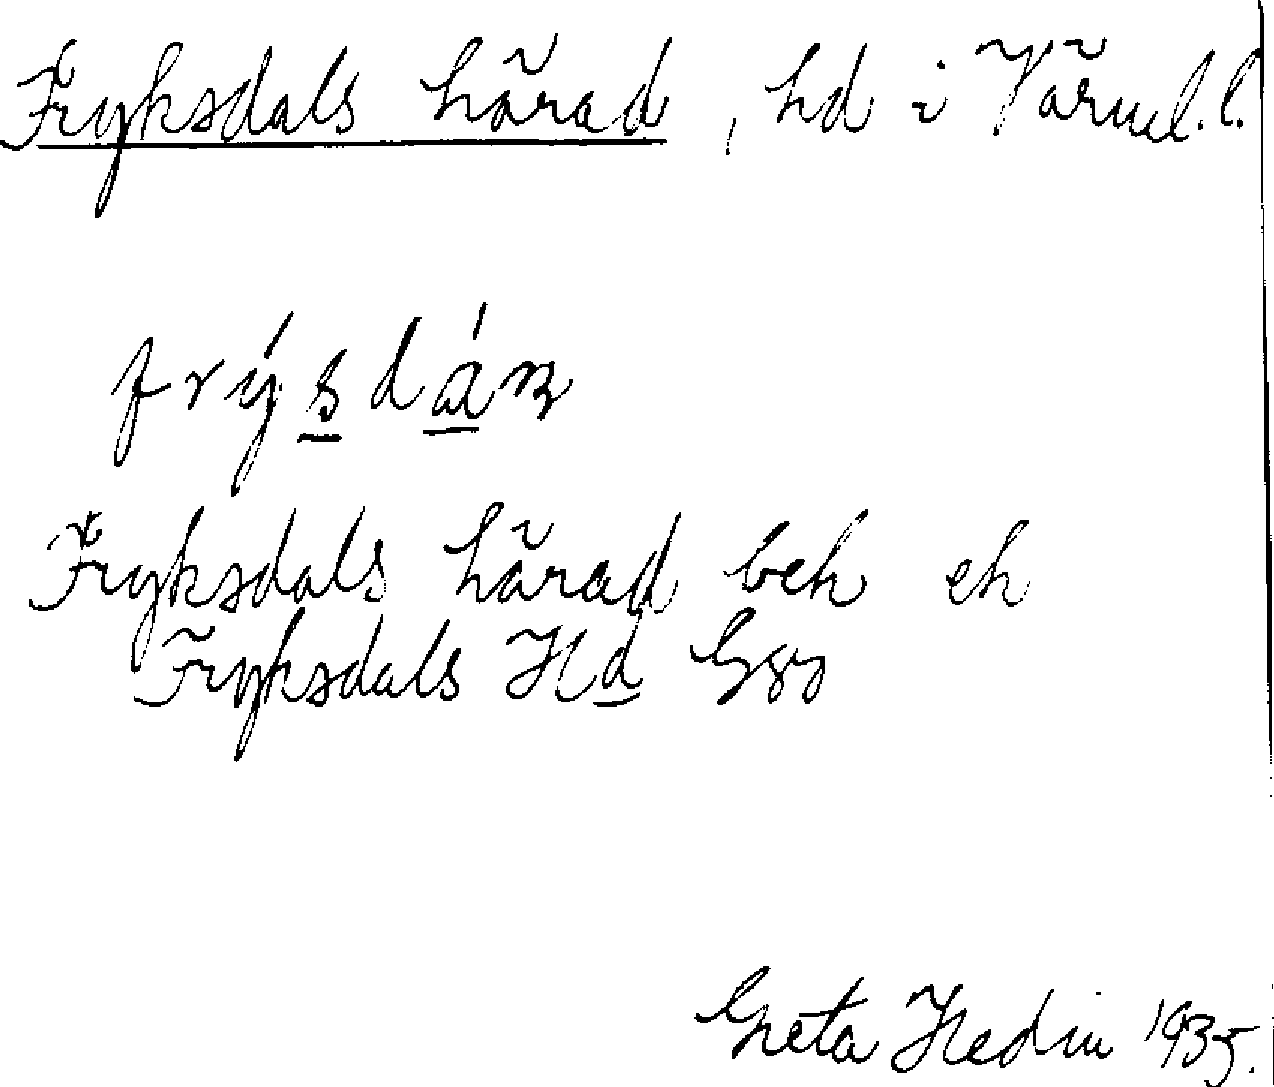 Fryksdals härad, hd i Värml. l.
frýsdán
Fryksdals härad beh eh
Fryksdals Hd Gs
Greta Hedin 1935.